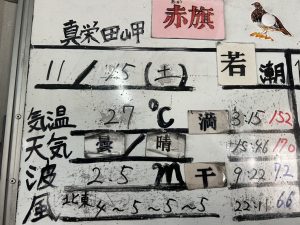 真栄田岬 赤旗
11/15(土) 若潮
気温 27℃ 満 3:15 152
天気 曇/晴 15:46 170
波 2.5m 干 9:22 72
風 北東 4～5～5～5 22:11 66